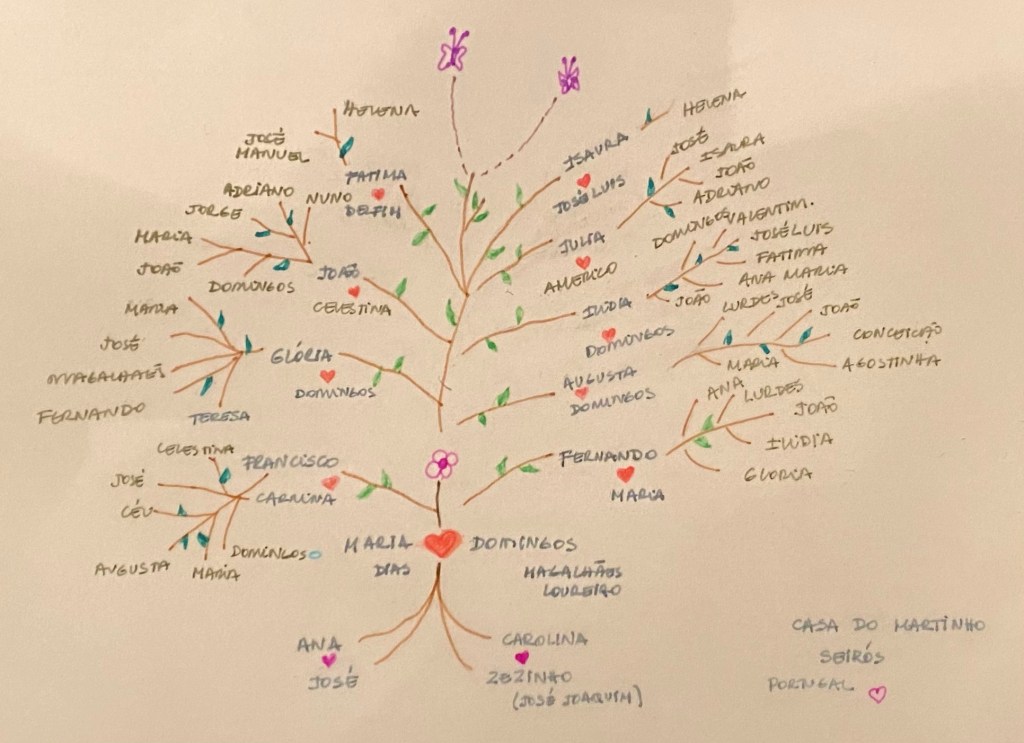 HELENA
JOSÉ
MANUEL
FATIMA
DELFIM
ADRIANO
NUNO
JORGE
MARIA
JOAÕ
DOMINGOS
JOAÕ
CELESTINA
MARIA
JOSÉ
FERNANDO
TERESA
GLÓRIA
DOMINGOS
CELESTINA
JOSÉ
CÉU
AUGUSTA
MARIA
DOMINGOS
FRANCISCO
CARMINA
HELENA
ISAURA
JOSÉ LUIS
JOSÉ
ISAURA
JOÃO
ADRIANO
JULIA
AMERICO
DOMINGOS
VALENTIM.
JOSÉ LUIS
FATIMA
ANA MARIA
JOÃO
ILIDIA
DOMINGOS
LURDES
JOSÉ
JOÃO
CONCEIÇÃO
AGOSTINHA
MARIA
AUGUSTA
DOMINGOS
ANA
LURDES
JOÃO
ILIDIA
GLORIA
FERNANDO
MARIA
MARIA
DIAS
DOMINGOS
MAGALHÃES
LOUREIRO
ANA
JOSÉ
CAROLINA
ZEZINHO
(JOSÉ JOAQUIM)
CASA DO MARTINHO
SEIRÓS
PORTUGAL